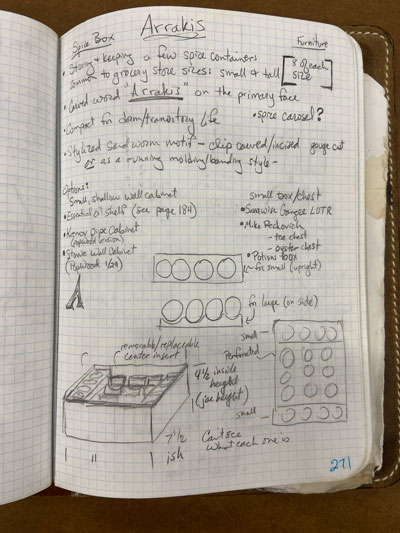 Arrakis
Spice Box
Furniture
• Storing & keeping a few spice containers
common to grocery store sizes: small & tall
8 of each
size
• Carved word "Arrakis" on the primary face
• Spice carosel?
• Compact for dorm/transitory life
• Stylized Sand worm motif - chip carved/incised gouge cut
or as a running molding/banding style -
Options?
Small, shallow wall cabinet
• Essential oil shelf (see page 184)
• Kenov pipe cabinet
• Stowe Wall Cabinet
(Popwood 1/24)
small box/chest
• Samwise Gamgee LOTR
• Mike Pekovich
- tea chest
- oyster chest
• Potions box
for small (upright)
for large (on side)
removable/replaceable
center insert
4 1/2 inside
height
(jar height)
7 1/2
ish
"
small
Perforated
small
Can't see
what each one is
271